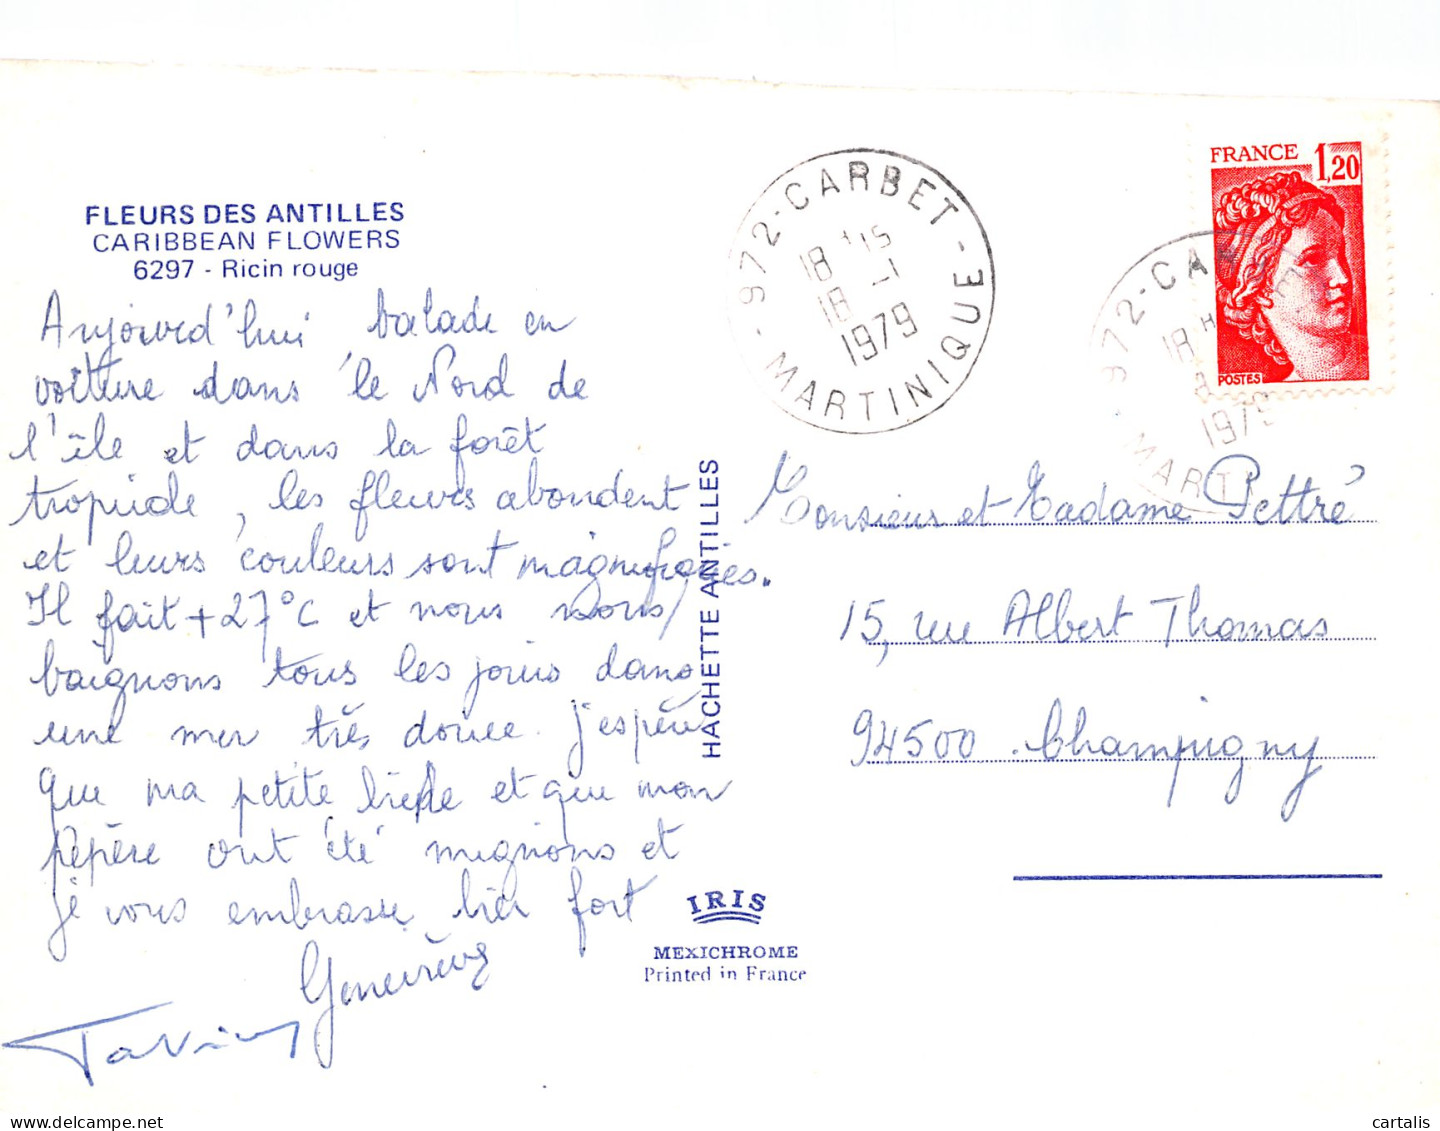 FLEURS DES ANTILLES
CARIBBEAN FLOWERS
6297 - Ricin rouge
Aujourd'hui balade en
voiture dans le Nord de
l'île et dans la forêt
tropicale, les fleurs abondent
et leurs couleurs sont magnifiques.
Il fait +27°C et nous nous
baignons tous les jours dans
une mer très douce. J'espère
que ma petite et que mon
pépère ont été mignons et
je vous embrasse bien fort
Geneviève
HACHETTE ANTILLES
IRIS
MEXICHROME
Printed in France
972-CARBET - MARTINIQUE
18 H15
18 -1
1979
FRANCE 1,20
POSTES
972-CARBET
18 H
1979
MARTI
Monsieur et Madame Pettré
15, rue Albert Thomas
94500 Champigny
cartalis
delcampe.net